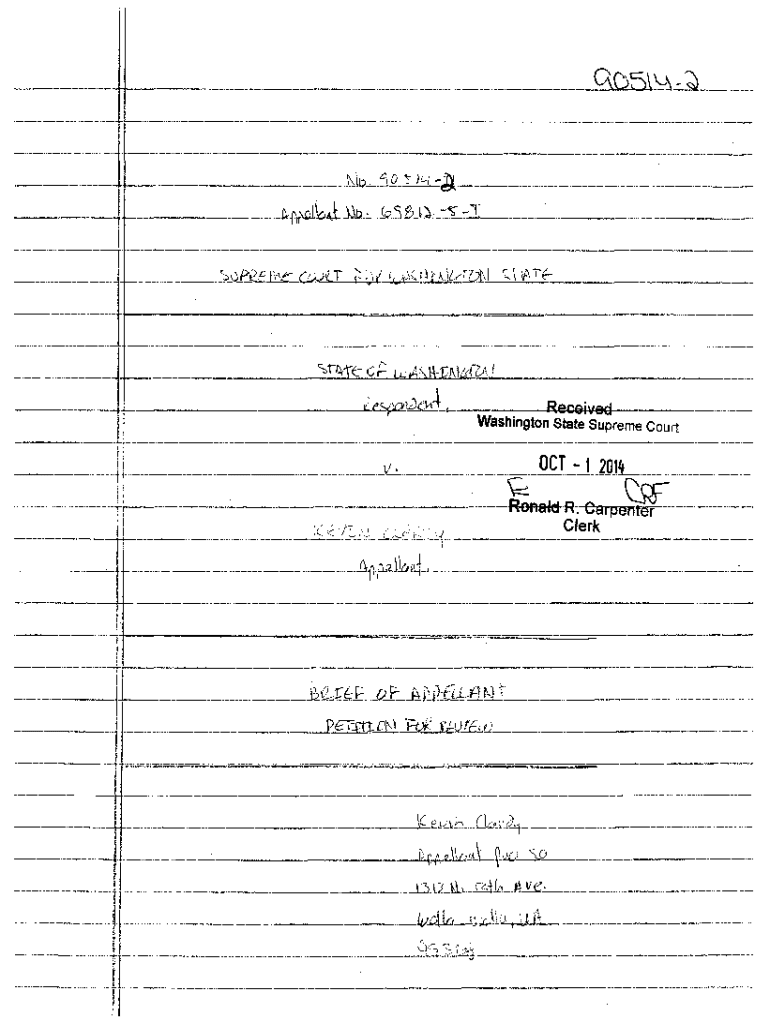 90514-2
No. 90514-2
Appellant No. 69812-5-I
SUPREME COURT FOR WASHINGTON STATE
STATE OF WASHINGTON
respondent,
Received
Washington State Supreme Court
v.
OCT - 1 2014
E CRF
Ronald R. Carpenter
Clerk
KEVIN CLARDY
Appellant.
BRIEF OF APPELLANT
PETITION FOR REVIEW
Kevin Clardy
Appellant pro se
1313 N. 13th Ave.
Walla Walla, WA